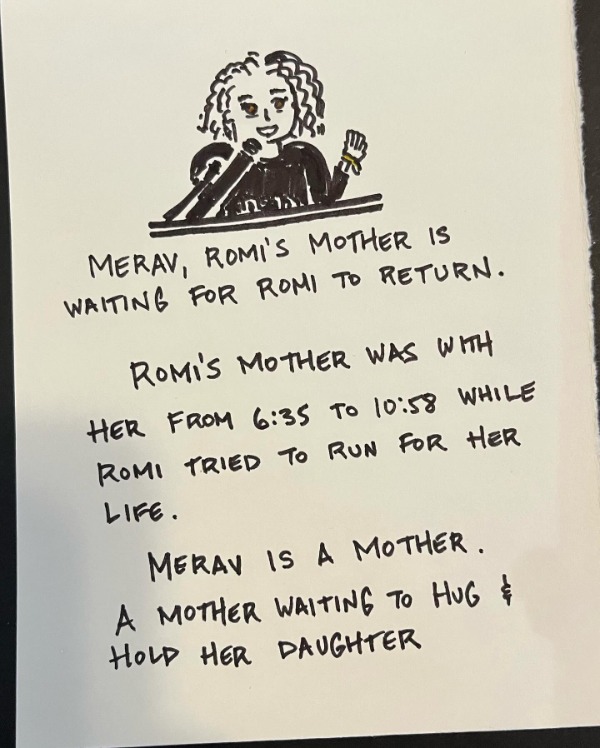 MERAV, ROMI'S MOTHER IS
WAITING FOR ROMI TO RETURN.
ROMI'S MOTHER WAS WITH
HER FROM 6:35 TO 10:58 WHILE
ROMI TRIED TO RUN FOR HER
LIFE.
MERAV IS A MOTHER.
A MOTHER WAITING TO HUG &
HOLD HER DAUGHTER